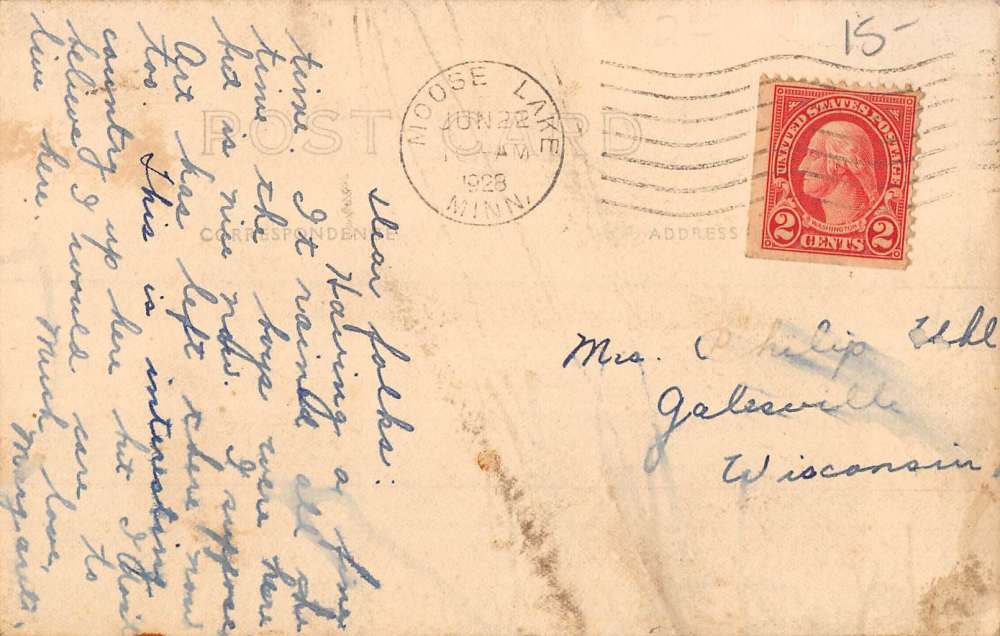 15-
POST CARD
MOOSE LAKE
JUN 22
AM
1928
MINN.
UNITED STATES POSTAGE
WASHINGTON
2 CENTS 2
CORRESPONDENCE
ADDRESS
Dear folks:
Having a fine
time. It rained all the
time the boys were here
but is nice now. I suppose
Art has left there now
too. This is interesting
country up here but I don't
believe I would care to
live here. Much love,
Margaret.
Mrs. Philip Uhl
Galesville
Wisconsin